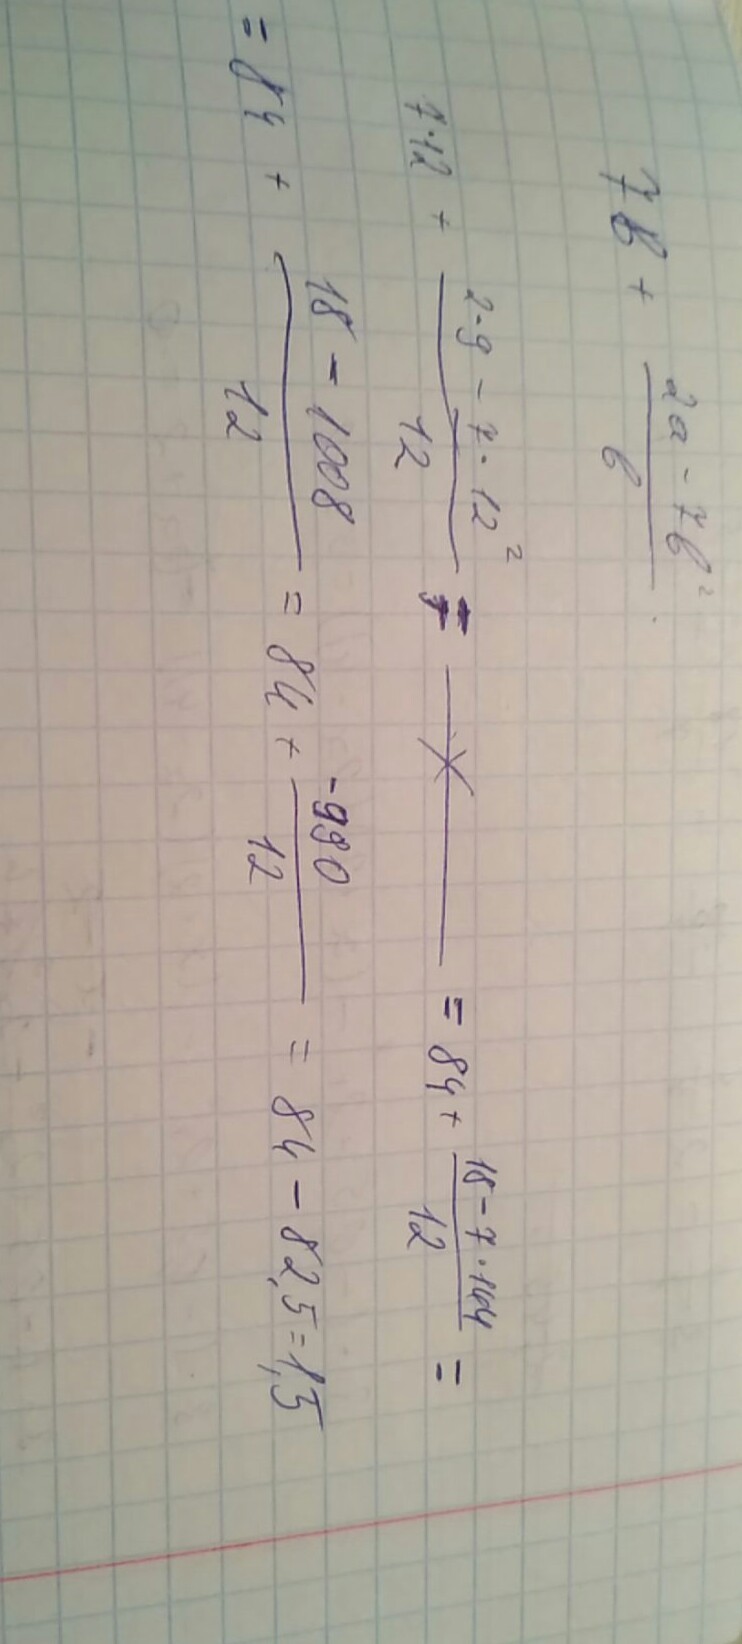 7в + (2a - 7в²)/в
7·12 + (2·9 - 7·12²)/12 = = 84 + (18 - 7·144)/12 =
= 84 + (18 - 1008)/12 = 84 + (-990)/12 = 84 - 82,5 = 1,5